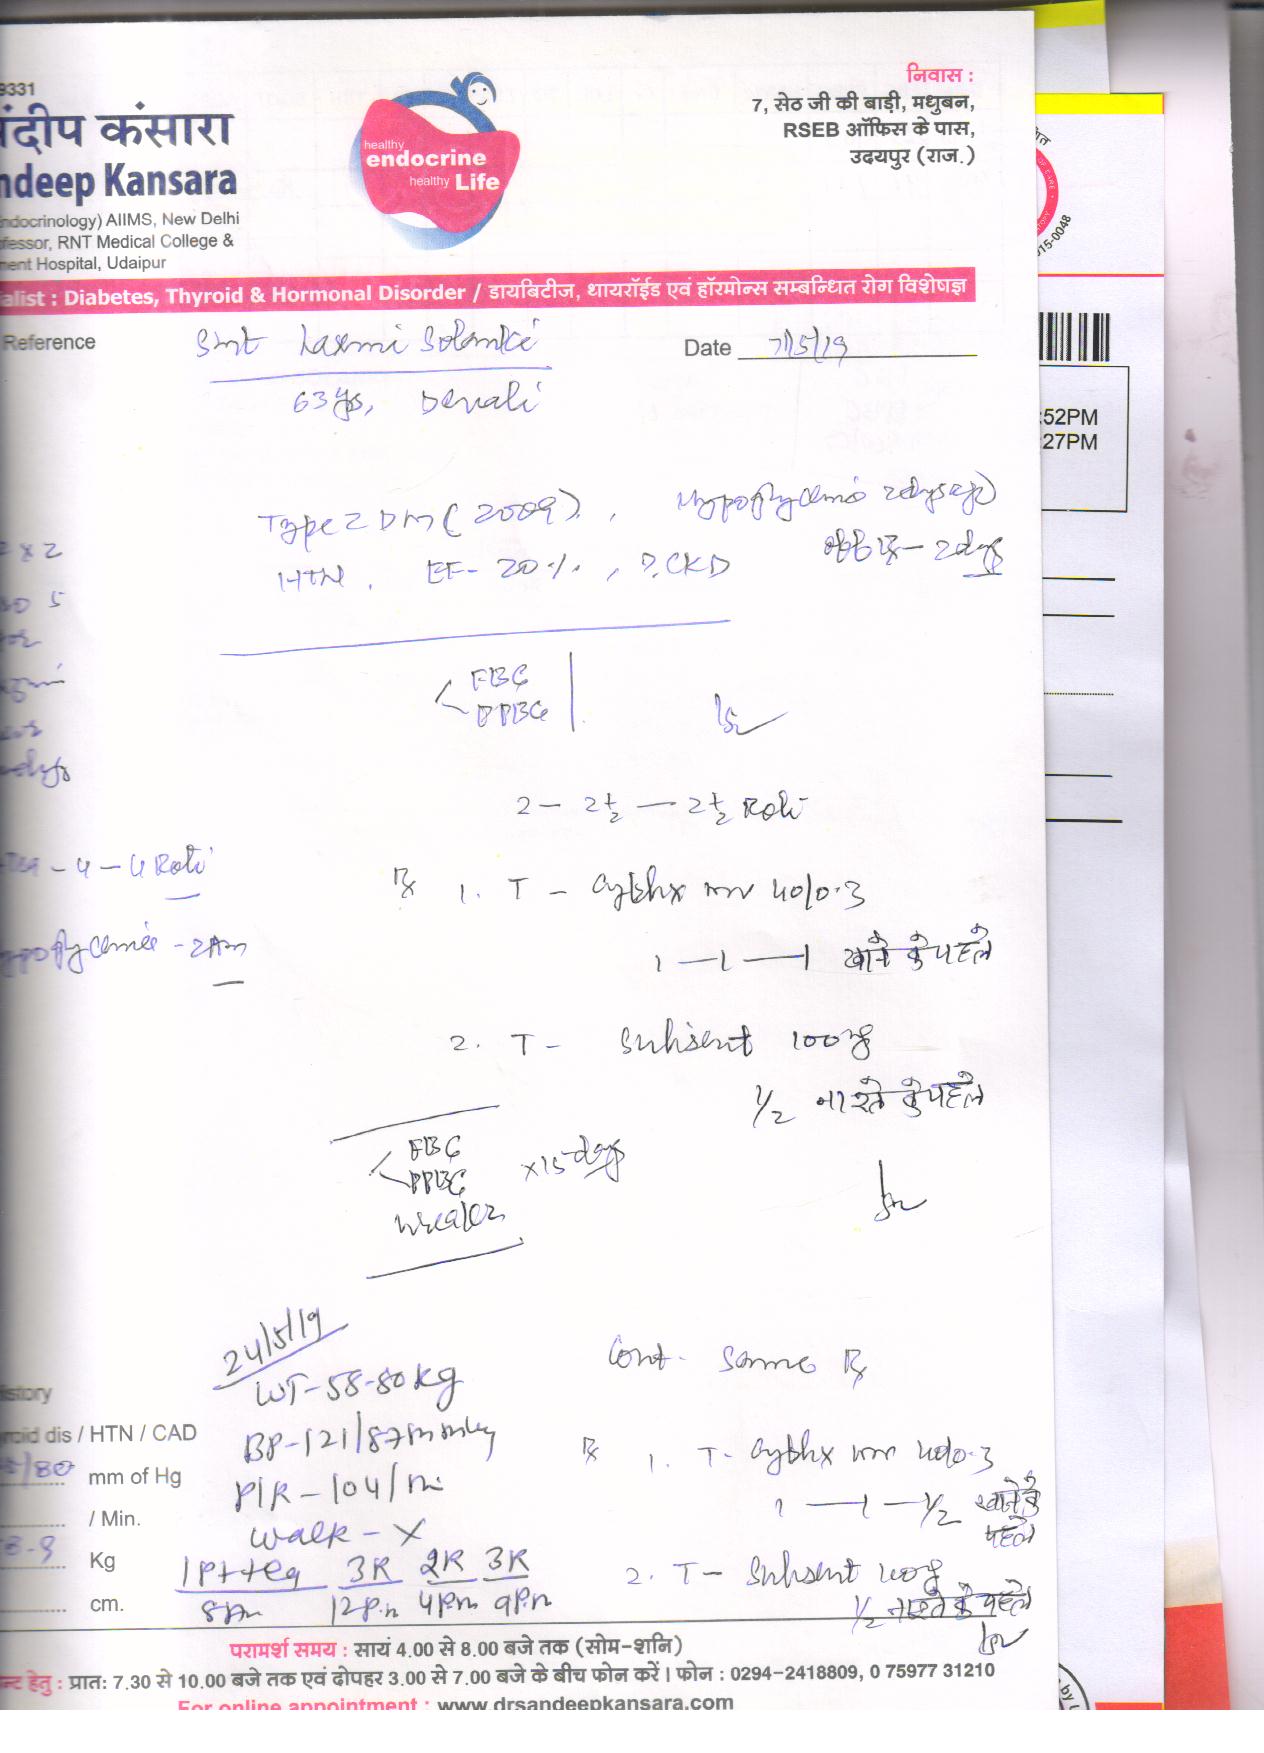 9331
संदीप कंसारा
ndeep Kansara
ndocrinology) AIIMS, New Delhi
fessor, RNT Medical College &
ment Hospital, Udaipur
healthy
endocrine
healthy Life
निवास :
7, सेठ जी की बाड़ी, मधुबन,
RSEB ऑफिस के पास,
उदयपुर (राज.)
alist : Diabetes, Thyroid & Hormonal Disorder / डायबिटीज, थायरॉईड एवं हॉरमोन्स सम्बन्धित रोग विशेषज्ञ
Reference
Smt Laxmi Solanki
Date 7/5/19
63 yrs,
:52PM
:27PM
015-0048
Type 2 DM (2009), Hypoglycemia 2 days ago
HTN, EF- 20%, ?CKD off Rx - 2 days
FBG
PPBG
2 - 2½ - 2½ Roti
- 4 - 4 Roti
- 2 Am
Rx 1. T - Cyblex MV 40/0.3
1 - 1 - 1 खाने के पहले
2. T - 100mg
1/2 नाश्ते के पहले
FBG
PPBG x 15 days
24/5/19
WT-58.80 kg
BP-121/87 mmHg
P/R - 104/m
Walk - X
1P++leg 3R 2R 3R
8Am 12P.m 4P.m 9P.m
Cont. Same Rx
Rx 1. T- Cyblex MV 40/0.3
1 - 1 - 1/2 खाने के पहले
2. T - 100mg
1/2 नाश्ते के पहले
istory
roid dis / HTN / CAD
/80 mm of Hg
/ Min.
Kg
cm.
परामर्श समय : सायं 4.00 से 8.00 बजे तक (सोम-शनि)
न्ट हेतु : प्रात: 7.30 से 10.00 बजे तक एवं दोपहर 3.00 से 7.00 बजे के बीच फोन करें । फोन : 0294-2418809, 0 75977 31210
For online appointment : www.drsandeepkansara.com